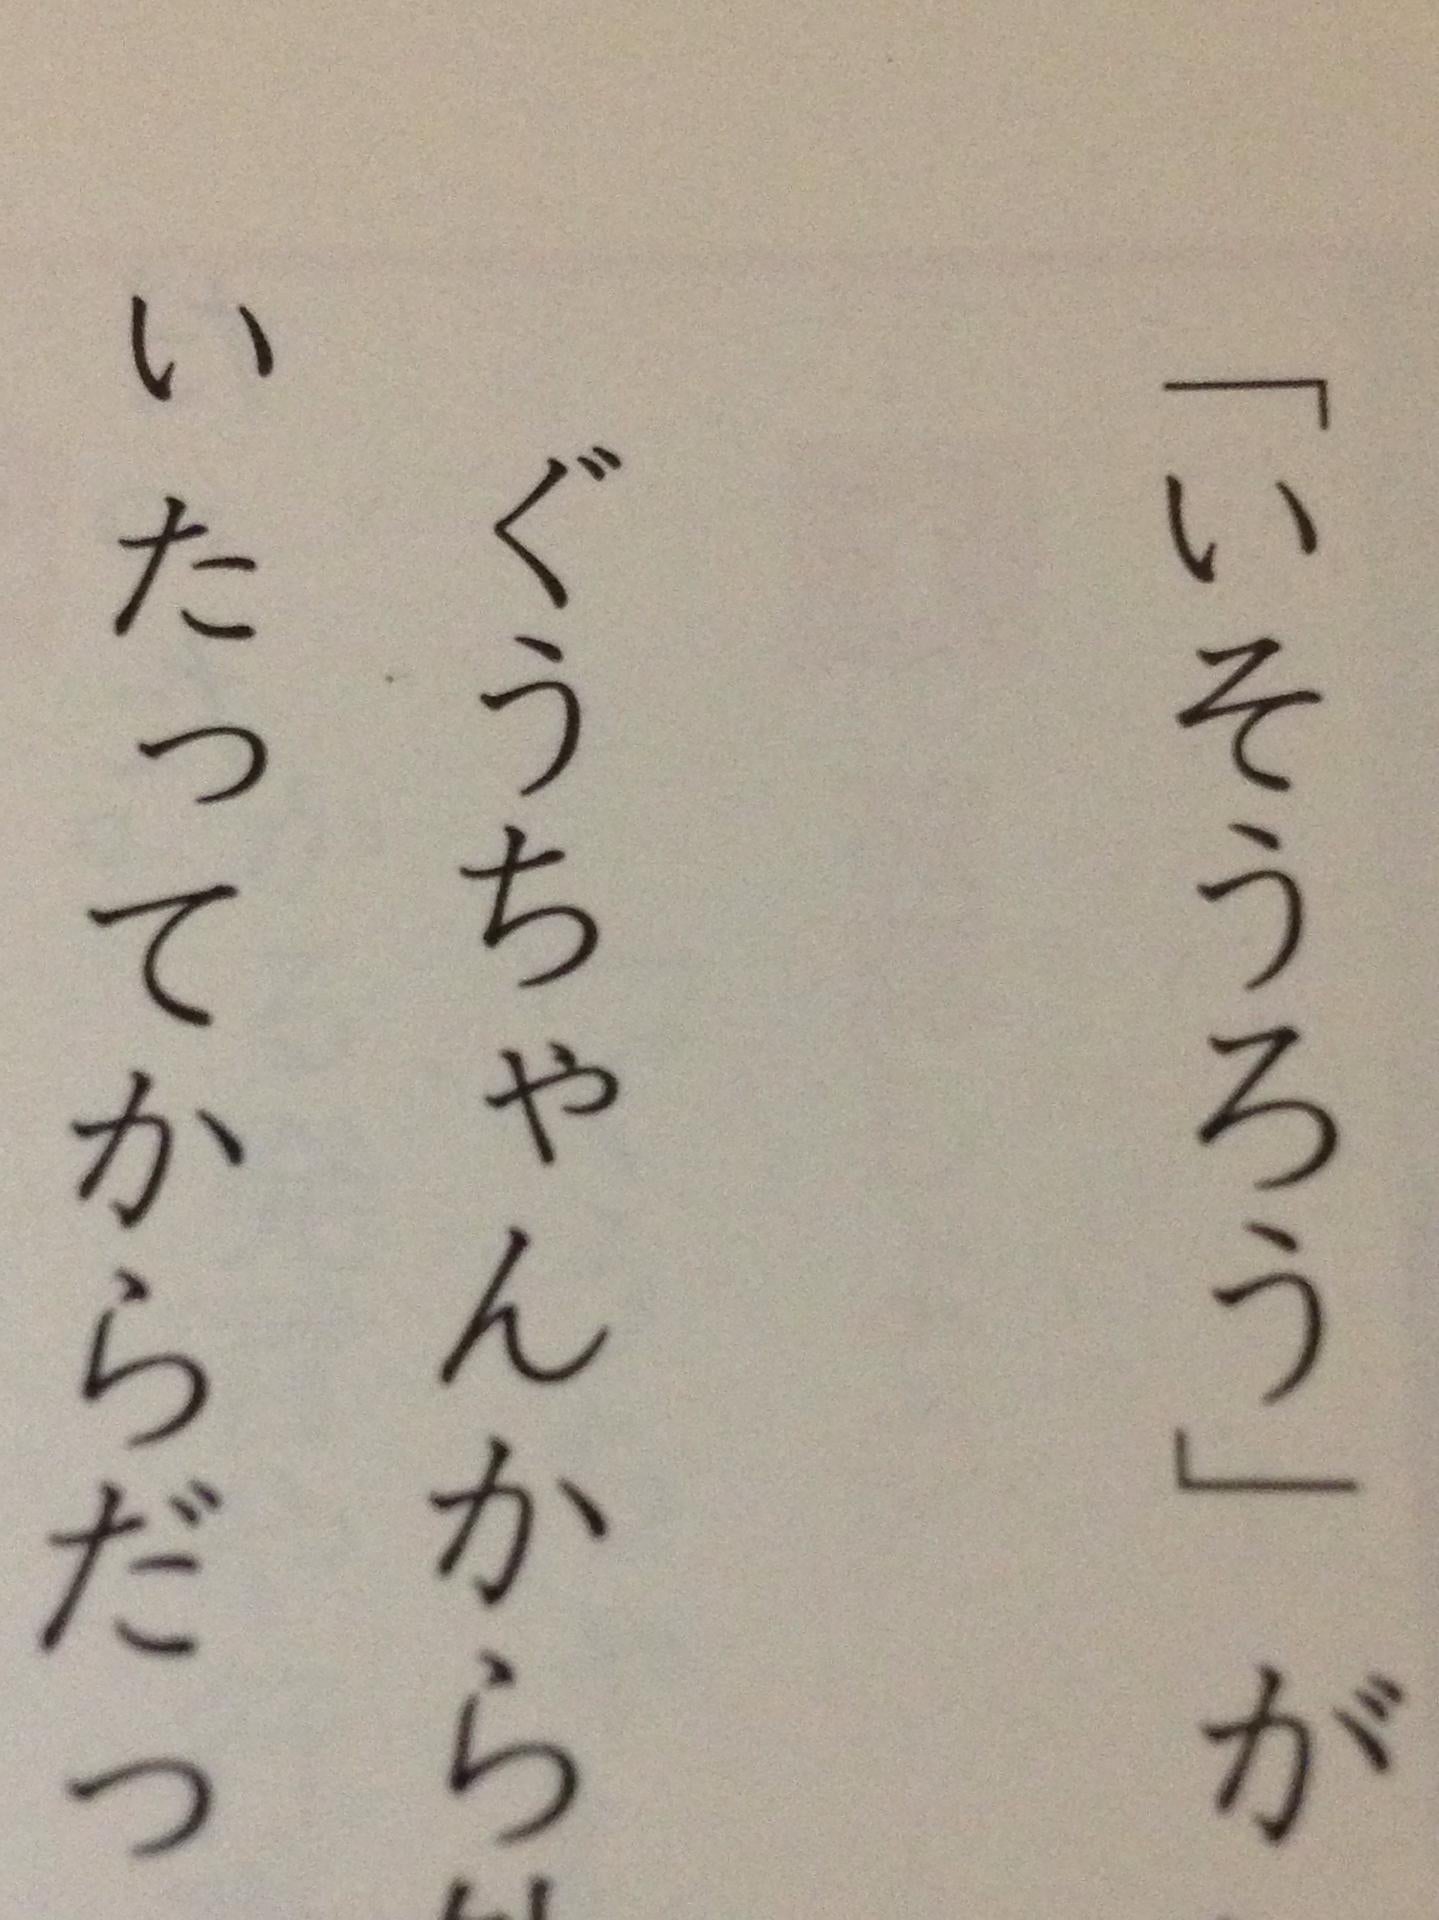 「いそうろう」が
ぐうちゃんから
いたってからだっ